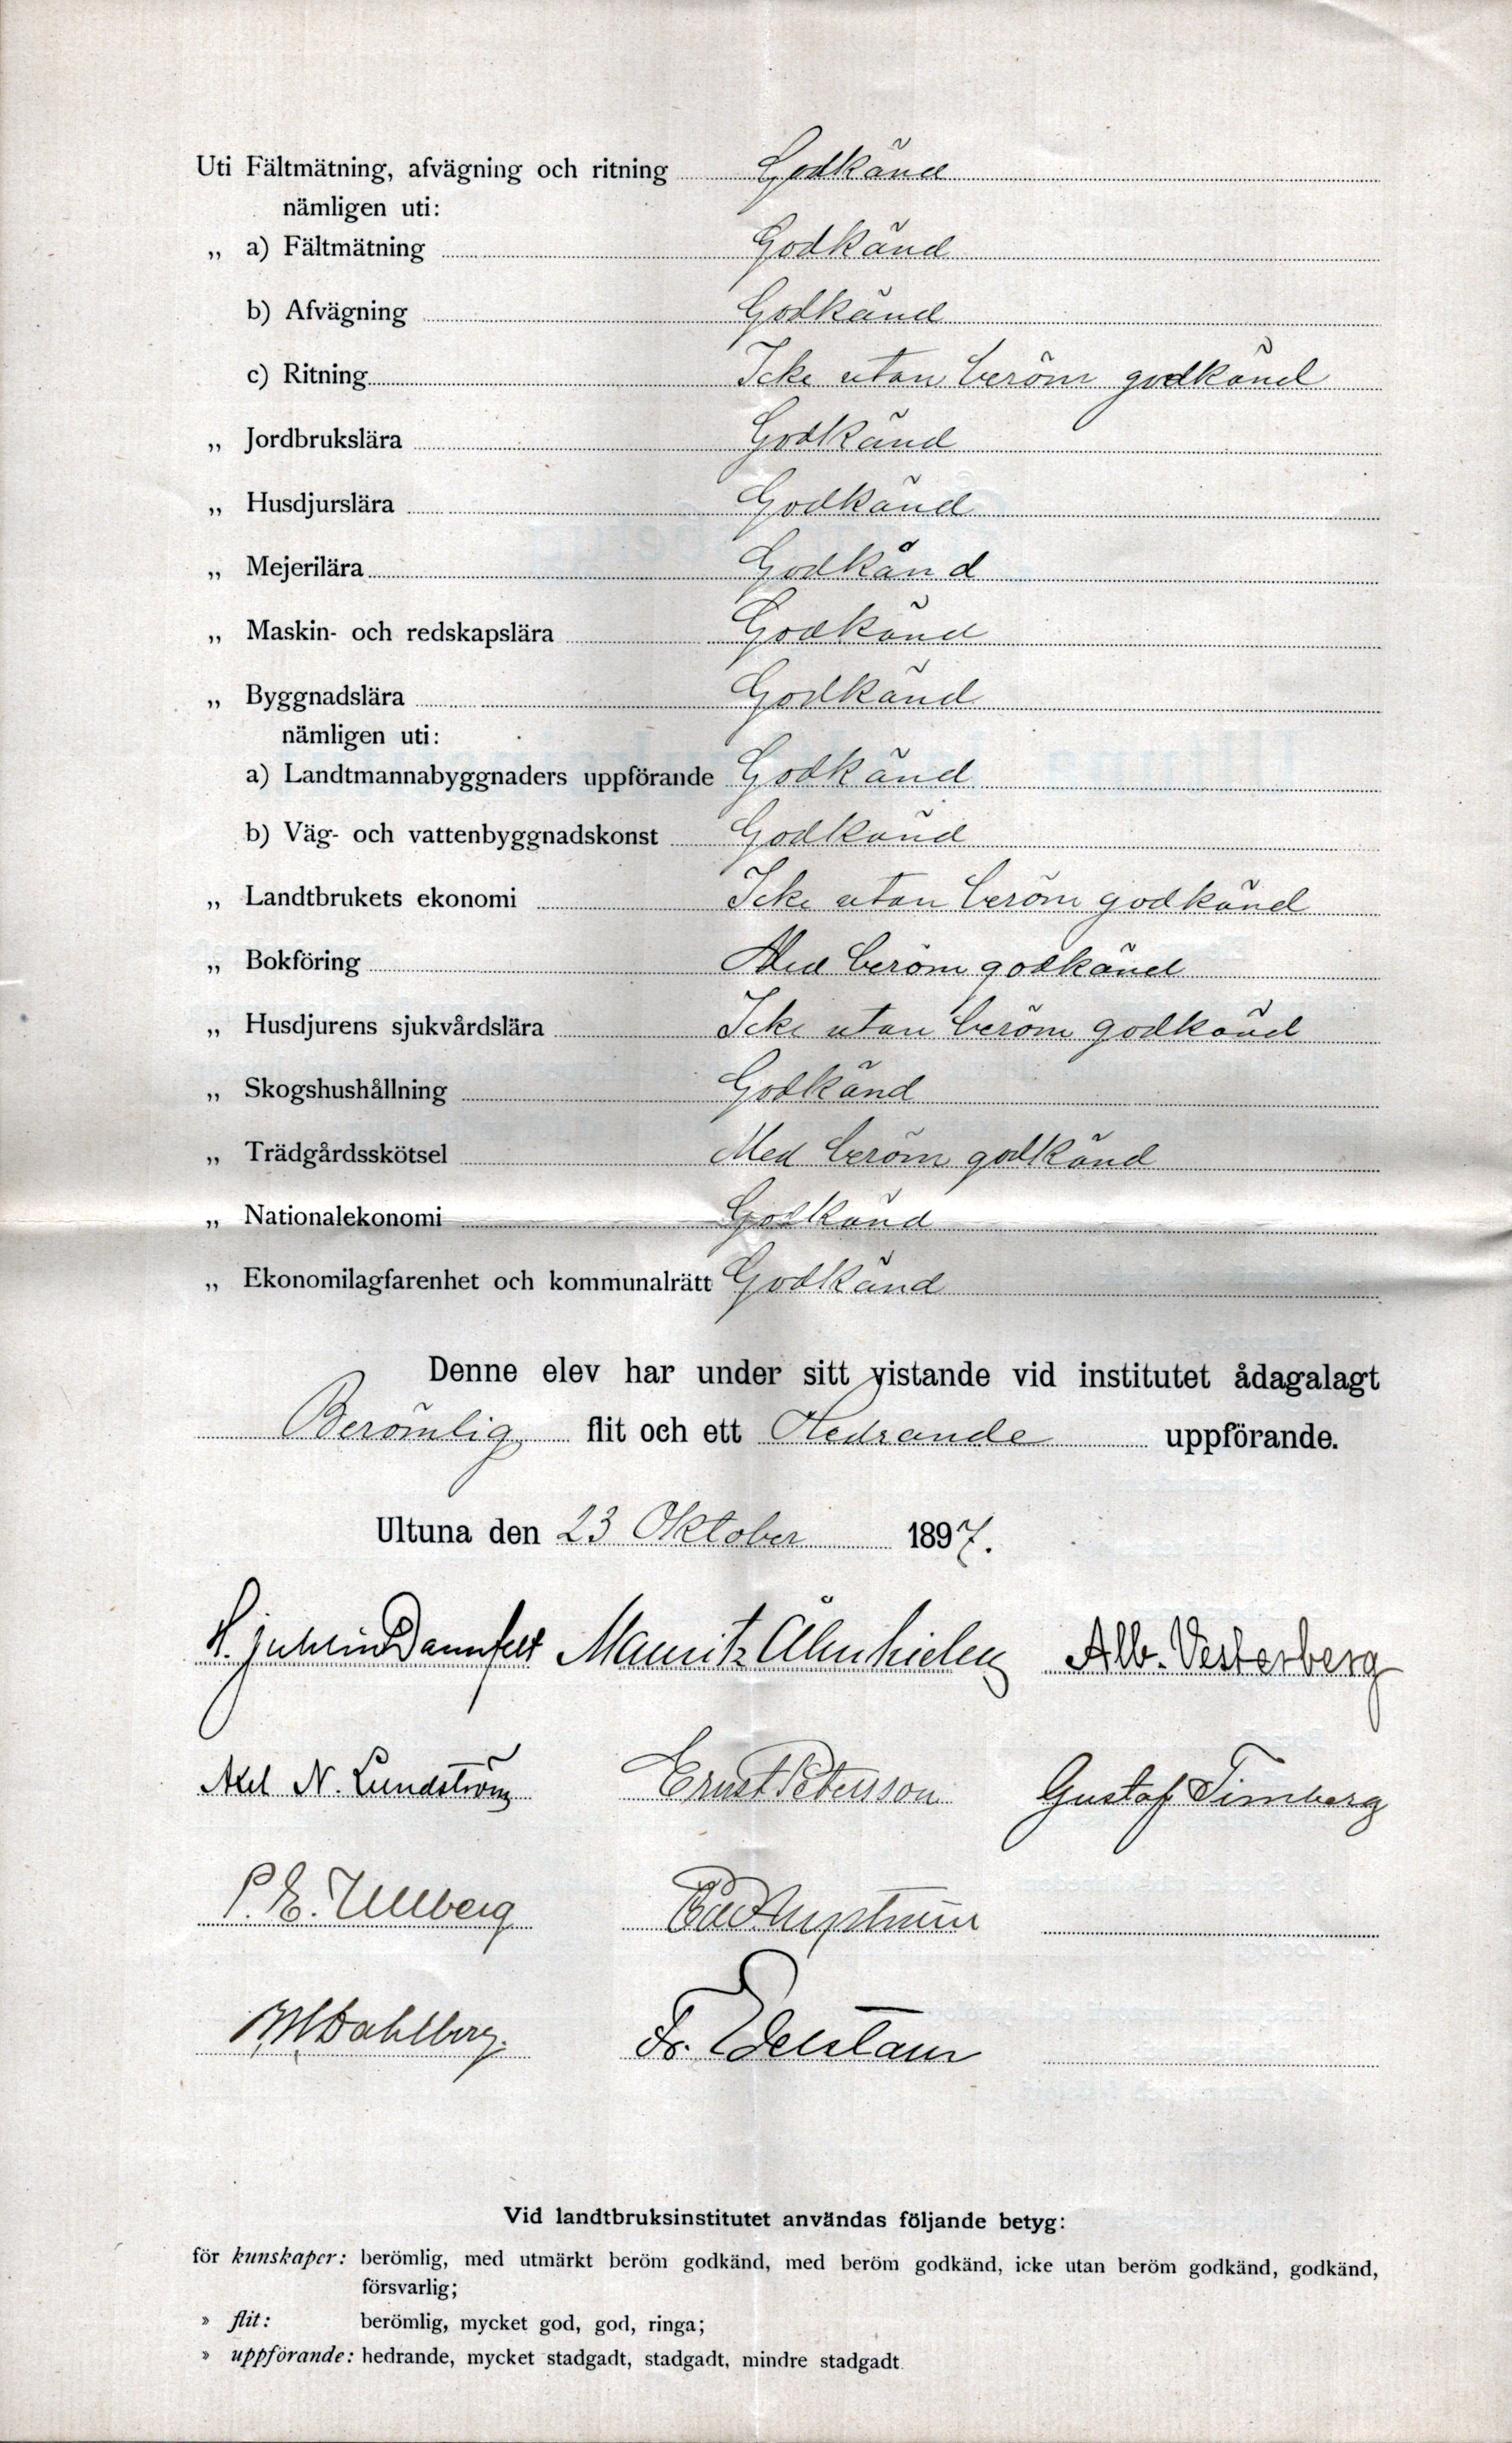 Uti Fältmätning, afvägning och ritning Godkänd
nämligen uti:
„ a) Fältmätning Godkänd
b) Afvägning Godkänd
c) Ritning Icke utan beröm godkänd
„ Jordbrukslära Godkänd
„ Husdjurslära Godkänd
„ Mejerilära Godkänd
„ Maskin- och redskapslära Godkänd
„ Byggnadslära Godkänd
nämligen uti:
a) Landtmannabyggnaders uppförande Godkänd
b) Väg- och vattenbyggnadskonst Godkänd
„ Landtbrukets ekonomi Icke utan beröm godkänd
„ Bokföring Med beröm godkänd
„ Husdjurens sjukvårdslära Icke utan beröm godkänd
„ Skogshushållning Godkänd
„ Trädgårdsskötsel Med beröm godkänd
„ Nationalekonomi Godkänd
„ Ekonomilagfarenhet och kommunalrätt Godkänd
Denne elev har under sitt vistande vid institutet ådagalagt
Berömlig flit och ett Hedrande uppförande.
Ultuna den 23 Oktober 1897.
H. Juhlin Dannfelt Mauritz Alb. Vesterberg
Axel N. Lundström Ernst Petersson Gustaf Timberg
P. E. Ullberg
Dahlberg. Fr. Edelstam
Vid landtbruksinstitutet användas följande betyg:
för kunskaper: berömlig, med utmärkt beröm godkänd, med beröm godkänd, icke utan beröm godkänd, godkänd,
försvarlig;
» flit: berömlig, mycket god, god, ringa;
» uppförande: hedrande, mycket stadgadt, stadgadt, mindre stadgadt.